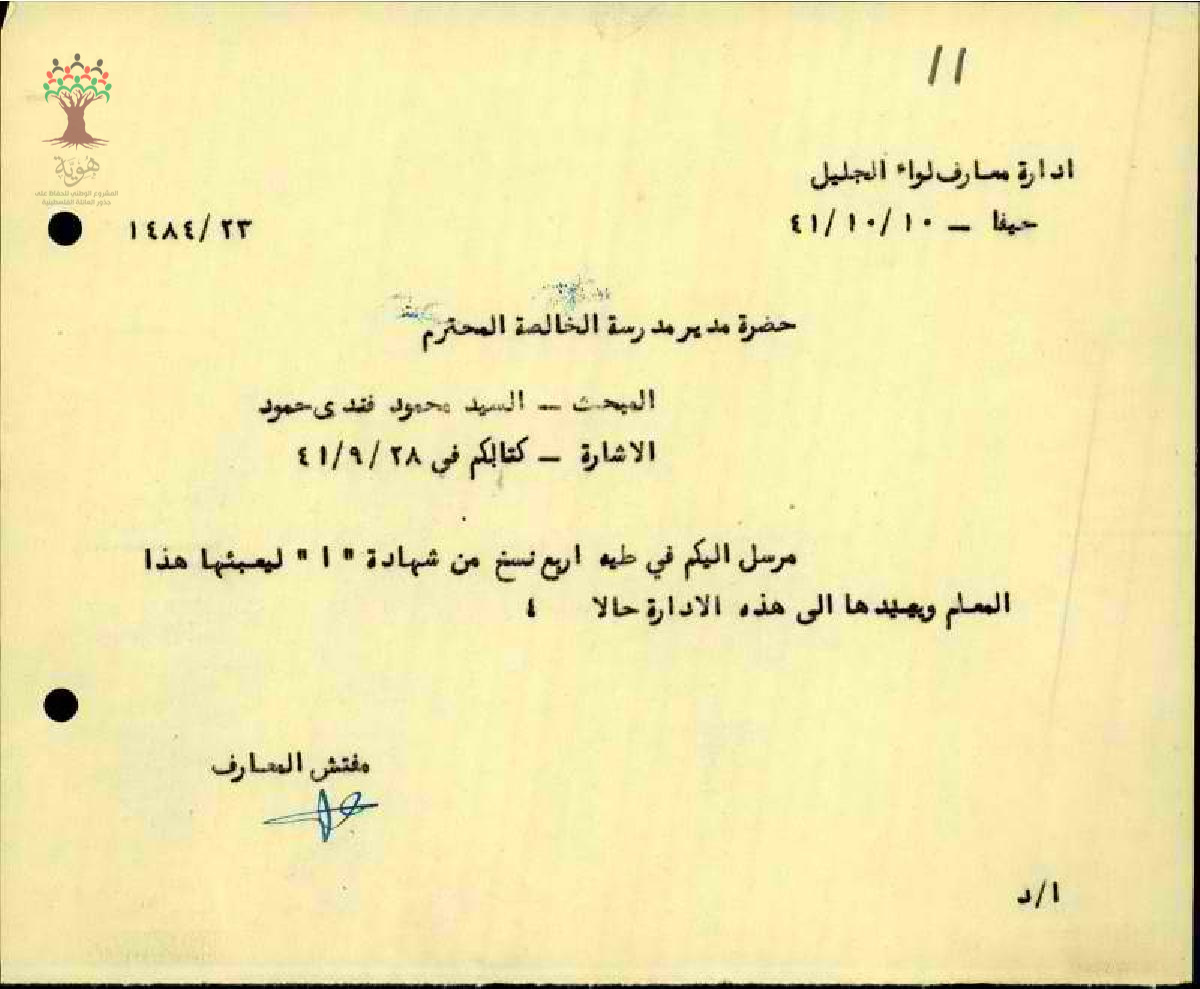 11
هُوِيَّة
المشروع الوطني للحفاظ على
جذور العائلة الفلسطينية
ادارة معارف لواء الجليل
حيفا – ٤١/١٠/١٠
١٤٨٤/٢٣
حضرة مدير مدرسة الخالصة المحترم
المبحث – السيد محمود فندى حمود
الاشارة – كتابكم في ٤١/٩/٢٨
مرسل اليكم في طيه اربع نسخ من شهادة " ا " ليعبئها هذا
المعلم ويعيدها الى هذه الادارة حالا ٤
مفتش المعارف
ا/د